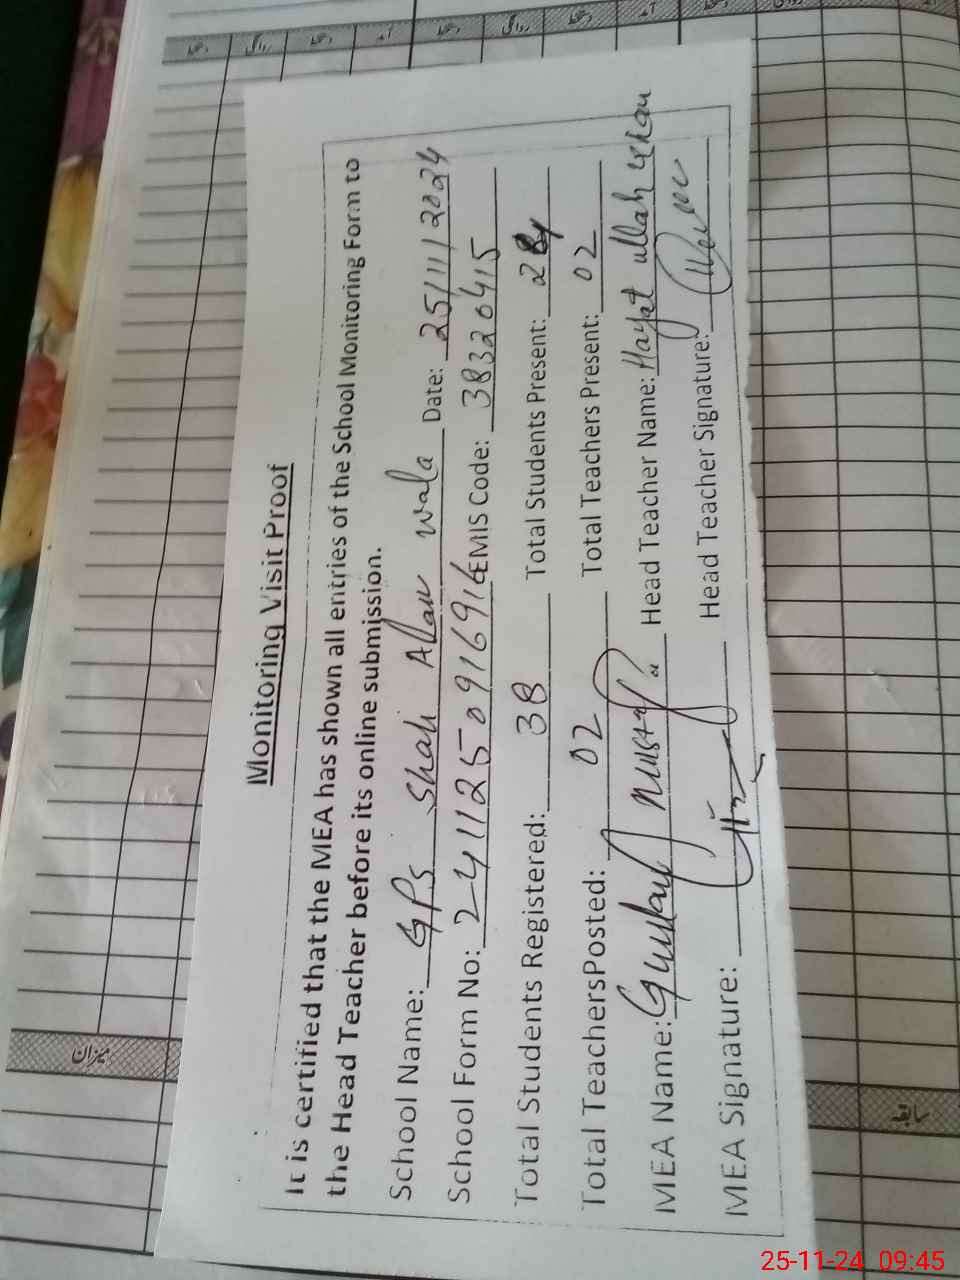 Monitoring Visit Proof
It is certified that the MEA has shown all entries of the School Monitoring Form to
the Head Teacher before its online submission.
School Name: GPS Shah Alam wala Date: 25/11/2024
School Form No: EMIS Code: 38320415
Total Students Registered: 38 Total Students Present:
Total Teachers Posted: 02 Total Teachers Present: 02
MEA Name: Head Teacher Name: Hayat ullah khan
MEA Signature: Head Teacher Signature:
میزان
25-11-24 09:45